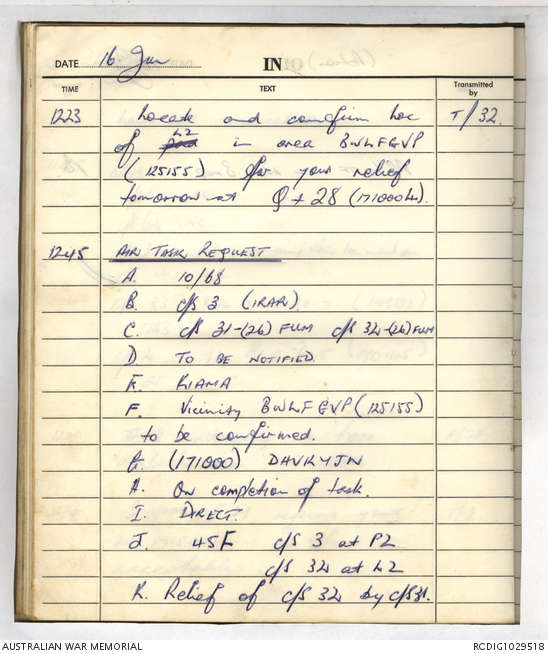 DATE 16 Jun IN
TIME TEXT Transmitted by
1223 Locate and confirm loc T/32.
of LZ in area BWLFGVP
(125155) for your relief
tomorrow at Q + 28 (171000H).
1245 AIR TASK REQUEST
A. 10/68
B. c/s 3 (1RAR)
C. c/s 31-(26) FUM c/s 32-(26) FUM
D. TO BE NOTIFIED
E. KIAMA
F. Vicinity BWLFGVP (125155)
to be confirmed.
G. (171000) DAVKYJN
H. On completion of task.
I. DIRECT.
J. 45F c/s 3 at PZ
c/s 32 at LZ
K. Relief of c/s 32 by c/s 31.
AUSTRALIAN WAR MEMORIAL RCDIG1029518